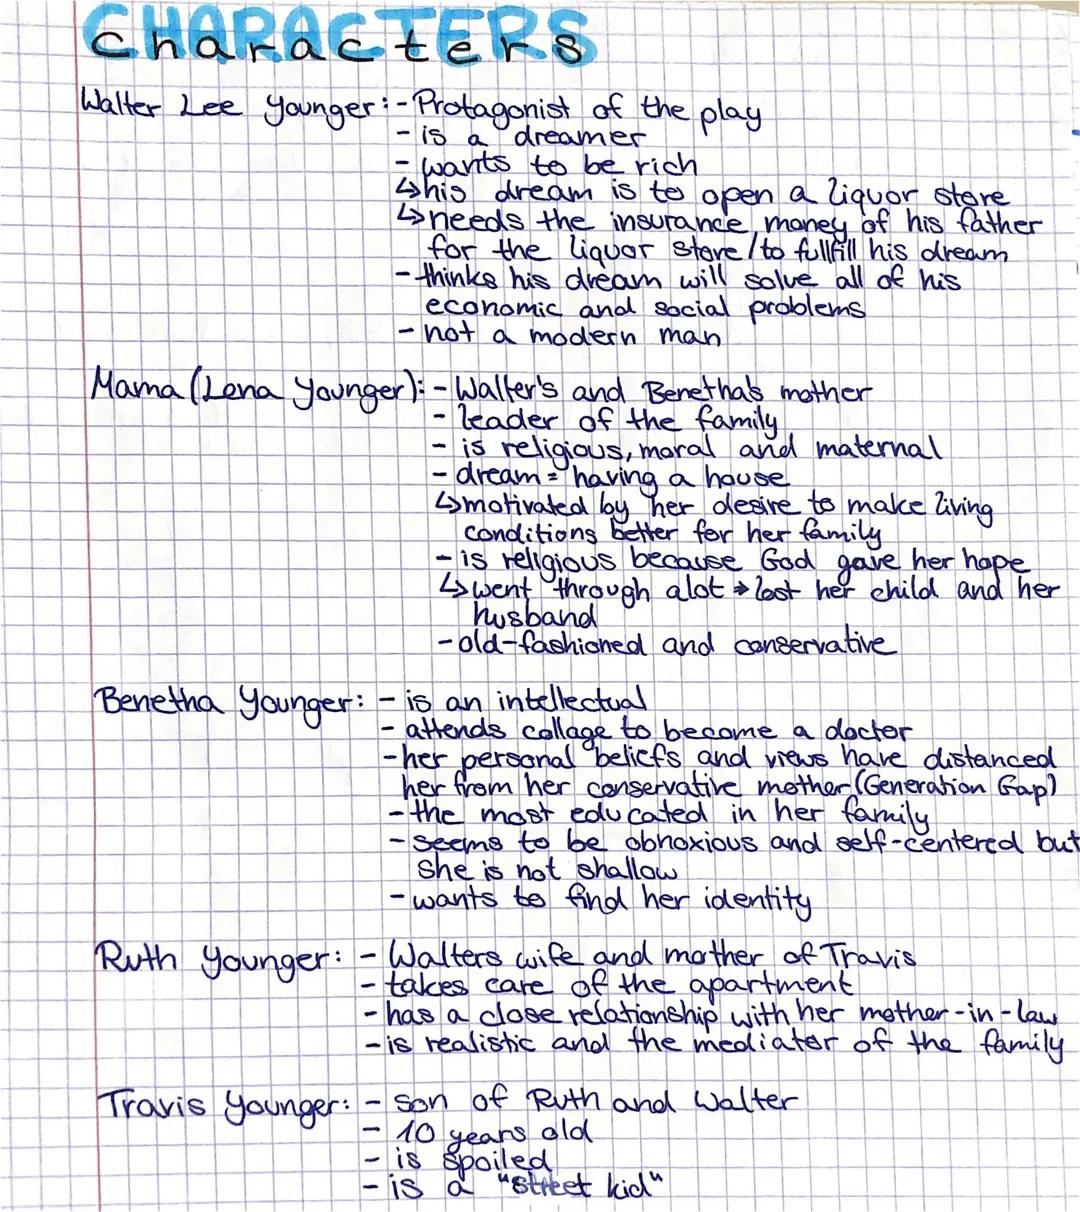 CHARACTERS
characters
Walter Lee Younger: - Protagonist of the play
- is a dreamer
- wants to be rich
↳ his dream is to open a liquor store
↳ needs the insurance money of his father
for the liquor store / to fullfill his dream
- thinks his dream will solve all of his
economic and social problems
- not a modern man
Mama (Lena Younger): - Walter's and Benetha's mother
- leader of the family
- is religious, moral and maternal
- dream = having a house
↳ motivated by her desire to make living
conditions better for her family
- is religious because God gave her hope
↳ went through alot → lost her child and her
husband
- old-fashioned and conservative
Benetha Younger: - is an intellectual
- attends collage to become a doctor
- her personal beliefs and views have distanced
her from her conservative mother (Generation Gap)
- the most educated in her family
- seems to be obnoxious and self-centered but
she is not shallow
- wants to find her identity
Ruth Younger: - Walters wife and mother of Travis
- takes care of the apartment
- has a close relationship with her mother-in-law
- is realistic and the mediator of the family
Travis Younger: - son of Ruth and Walter
- 10 years old
- is spoiled
- is a "street kid"